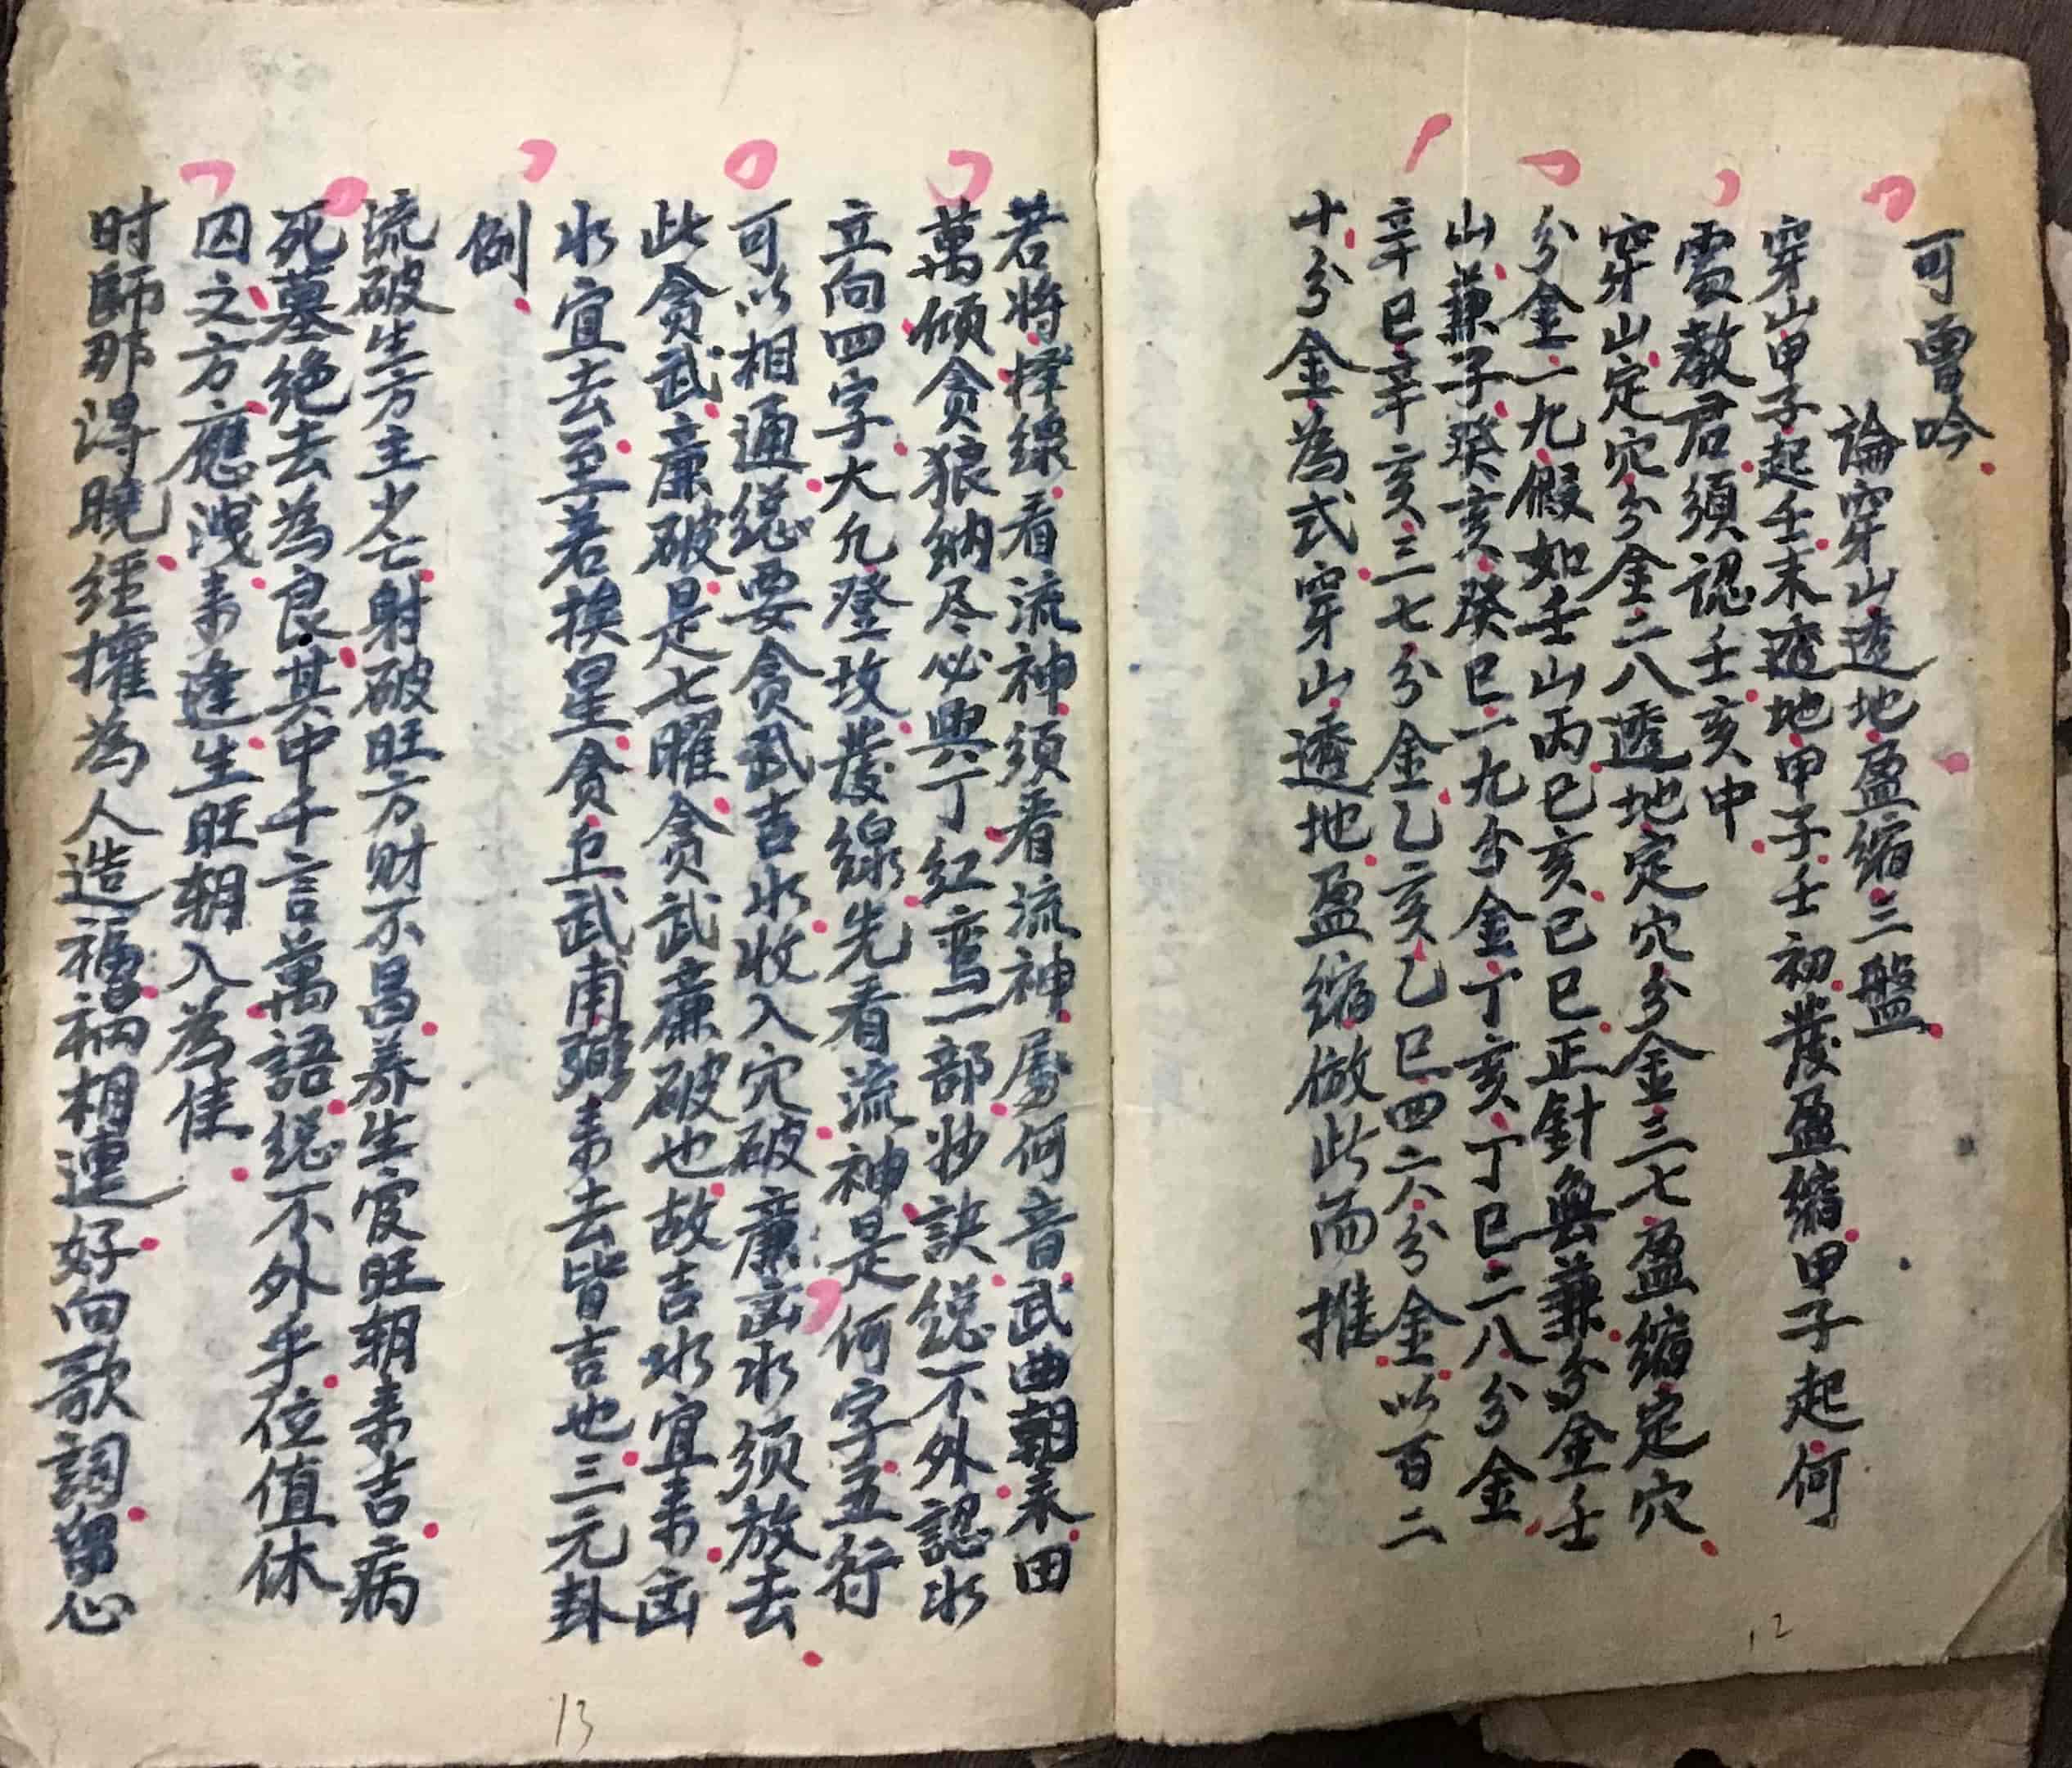 可曾吟
論穿山透地盈缩三盤
穿山甲子起壬末透地甲子壬初發盈縮甲子起何
處教君須認壬亥中
穿山定穴分金二八透地定穴分金三七盈缩定穴
分金一九假如壬山丙巳亥巳巳正針兼分金壬
山兼子癸亥癸巳一九分金丁亥丁巳二八分金
辛巳辛亥三七分金乙亥乙巳四六分金以百二
十分金為式穿山透地盈缩做此而推
12
若将擇線看流神须看流神屬何音武曲朝来田
萬傾贪狼納尽必興丁红鸾一部抄訣總不外認水
立向四字大凢登坟發線先看流神是何字五行
可以相通總要贪武吉水收入穴破廉凶水须放去
此贪武廉破是七曜贪武廉破也故吉水宜来凶
水宜去至若挨星贪巨武甫弼来去皆吉也三元卦
例
流破生方主少亡射破旺方财不昌养生官旺朝来吉病
死墓绝去為良其中千言萬語總不外乎位值休
囚之方應洩来逢生旺朝入為佳
时師那得曉經權為人造福禍相連好向歌詞留心
13